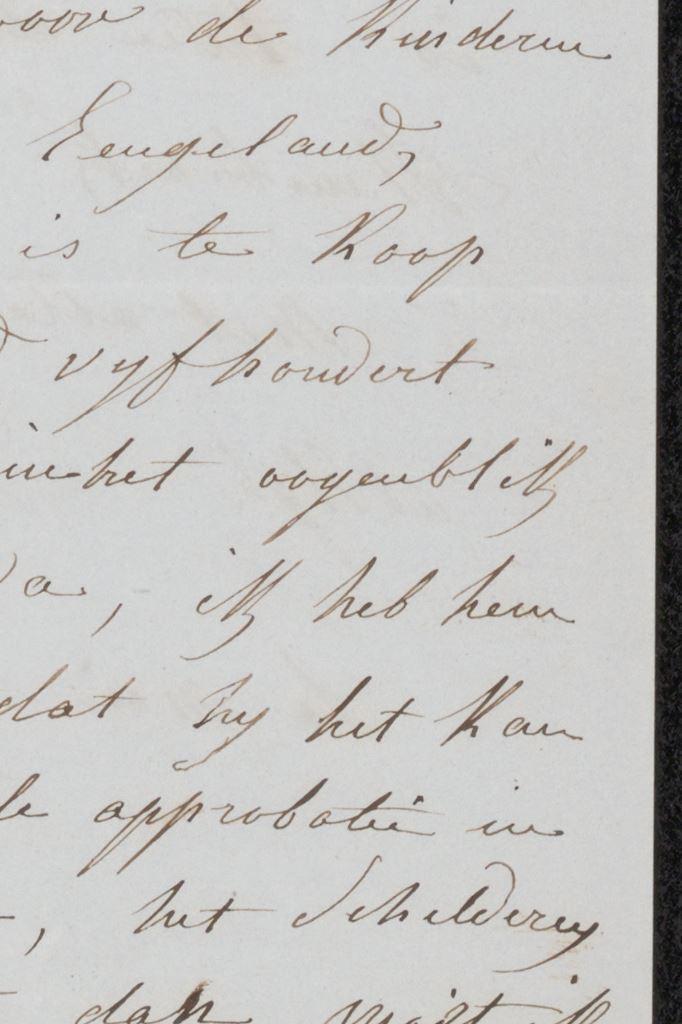 voor de Kinderen
Eengeland,
is te Koop
vyfhondert
in het oogenblik
a, ik heb hem
dat hy het Kan
approbatie in
, het Schildery
dan moet ik